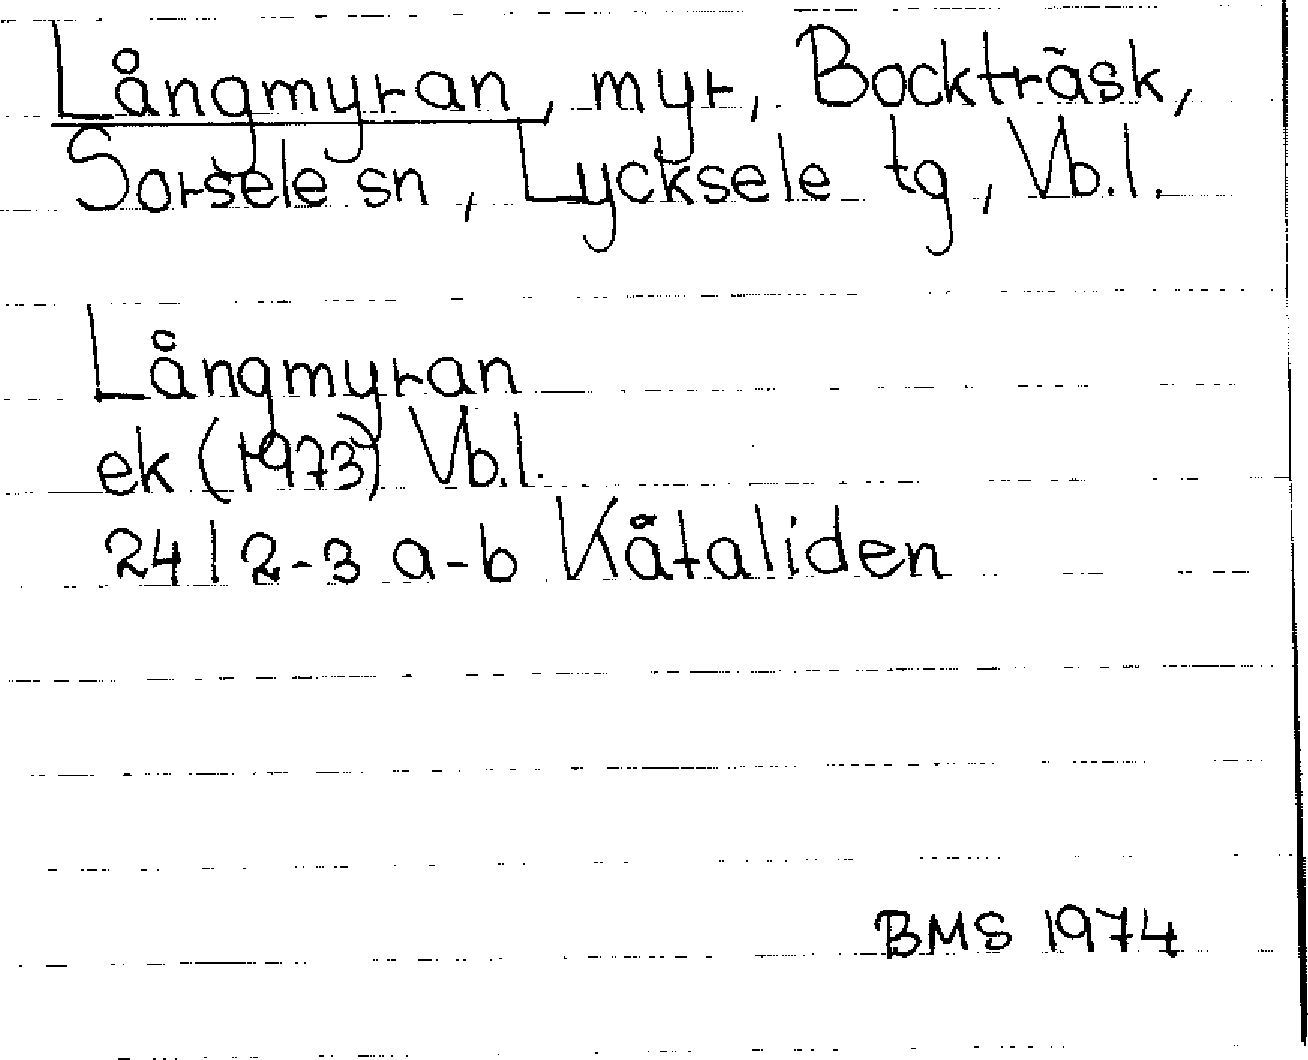 Långmyran, myr, Bockträsk,
Sorsele sn, Lycksele tg, Vb.l.
Långmyran
ek (1973) Vb.l.
24 I 2-3 a-b Kåtaliden
BMS 1974